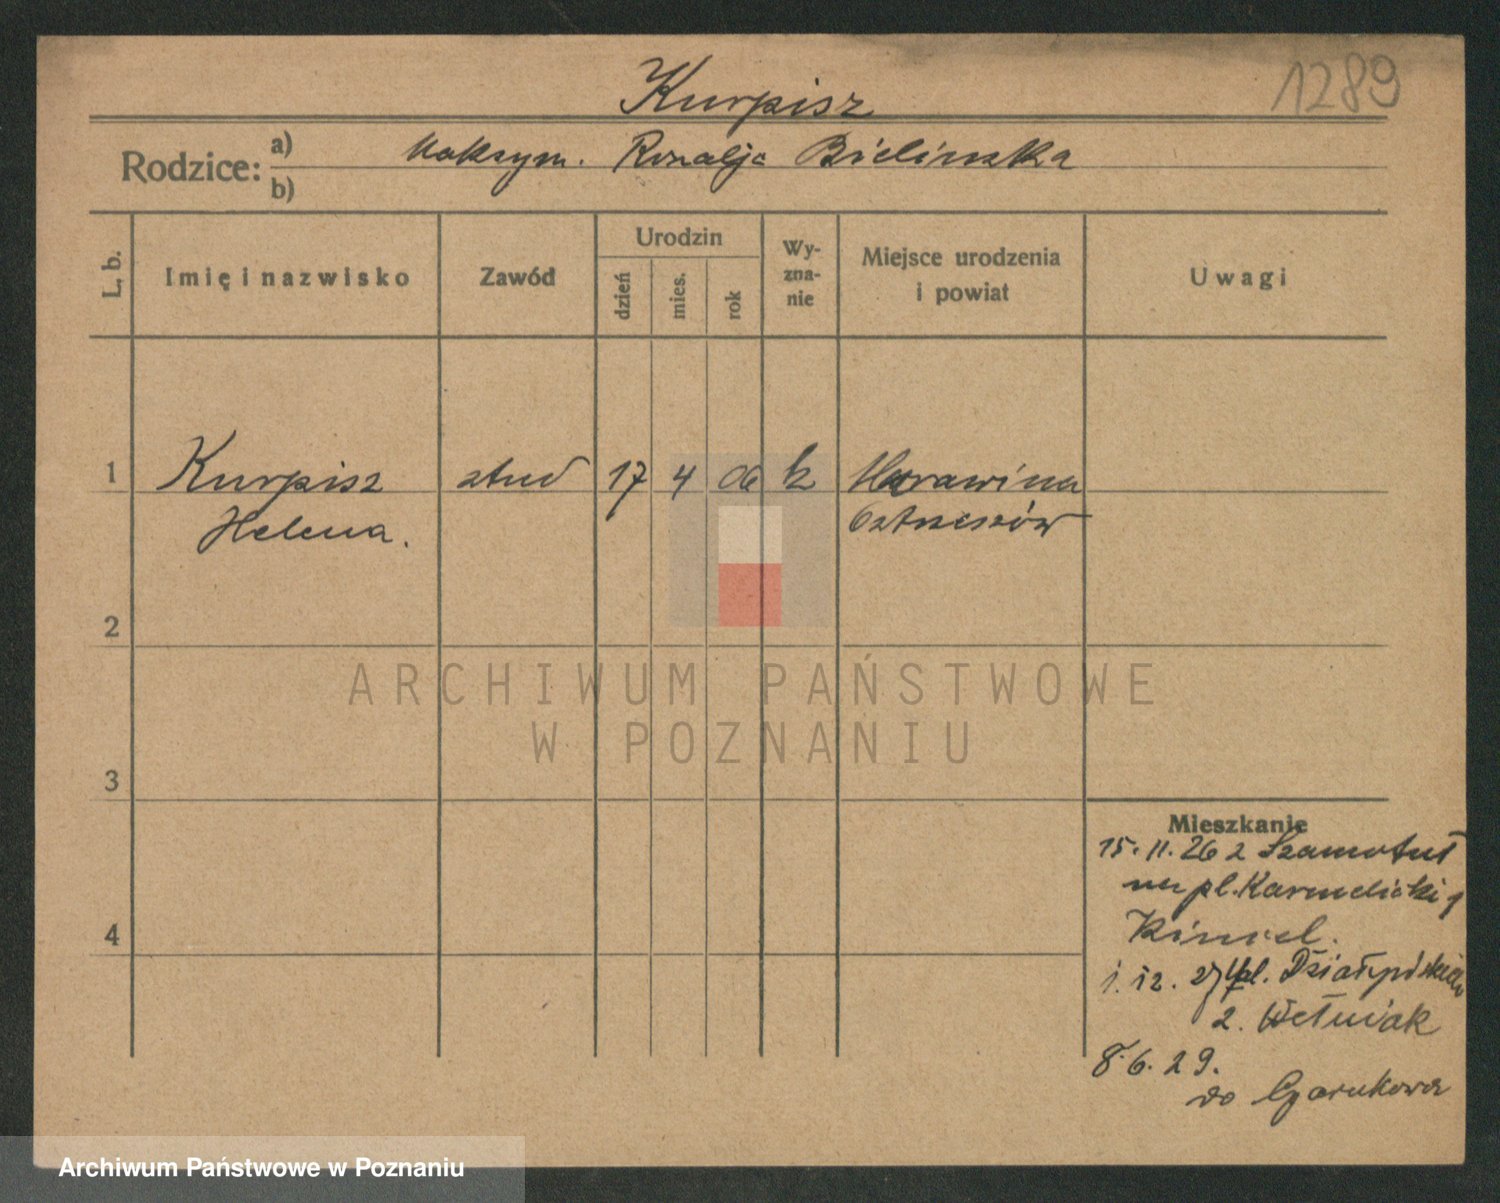 1289
Kurpisz
Rodzice: a) Maksym. Rozalja Bielinska
b)
L. b. Imię i nazwisko Zawód Urodzin dzień mies. rok Wy-zna-nie Miejsce urodzenia i powiat Uwagi
1 Kurpisz stud 17 4 06 k Marawina
Helena. Ostrzeszów
2
ARCHIWUM PAŃSTWOWE
W POZNANIU
3
Mieszkanie
15. 11. 26 z Szamotuł
pl. Karmelicki 1
4
1. 12. 27 pl. Działyńskich
2. Wełniak
8. 6. 29.
do Czarnkowa
Archiwum Państwowe w Poznaniu